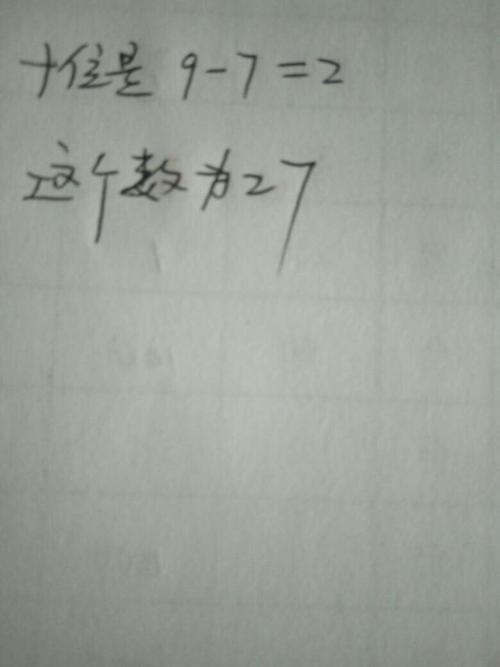 十位是 9-7=2
这个数为27